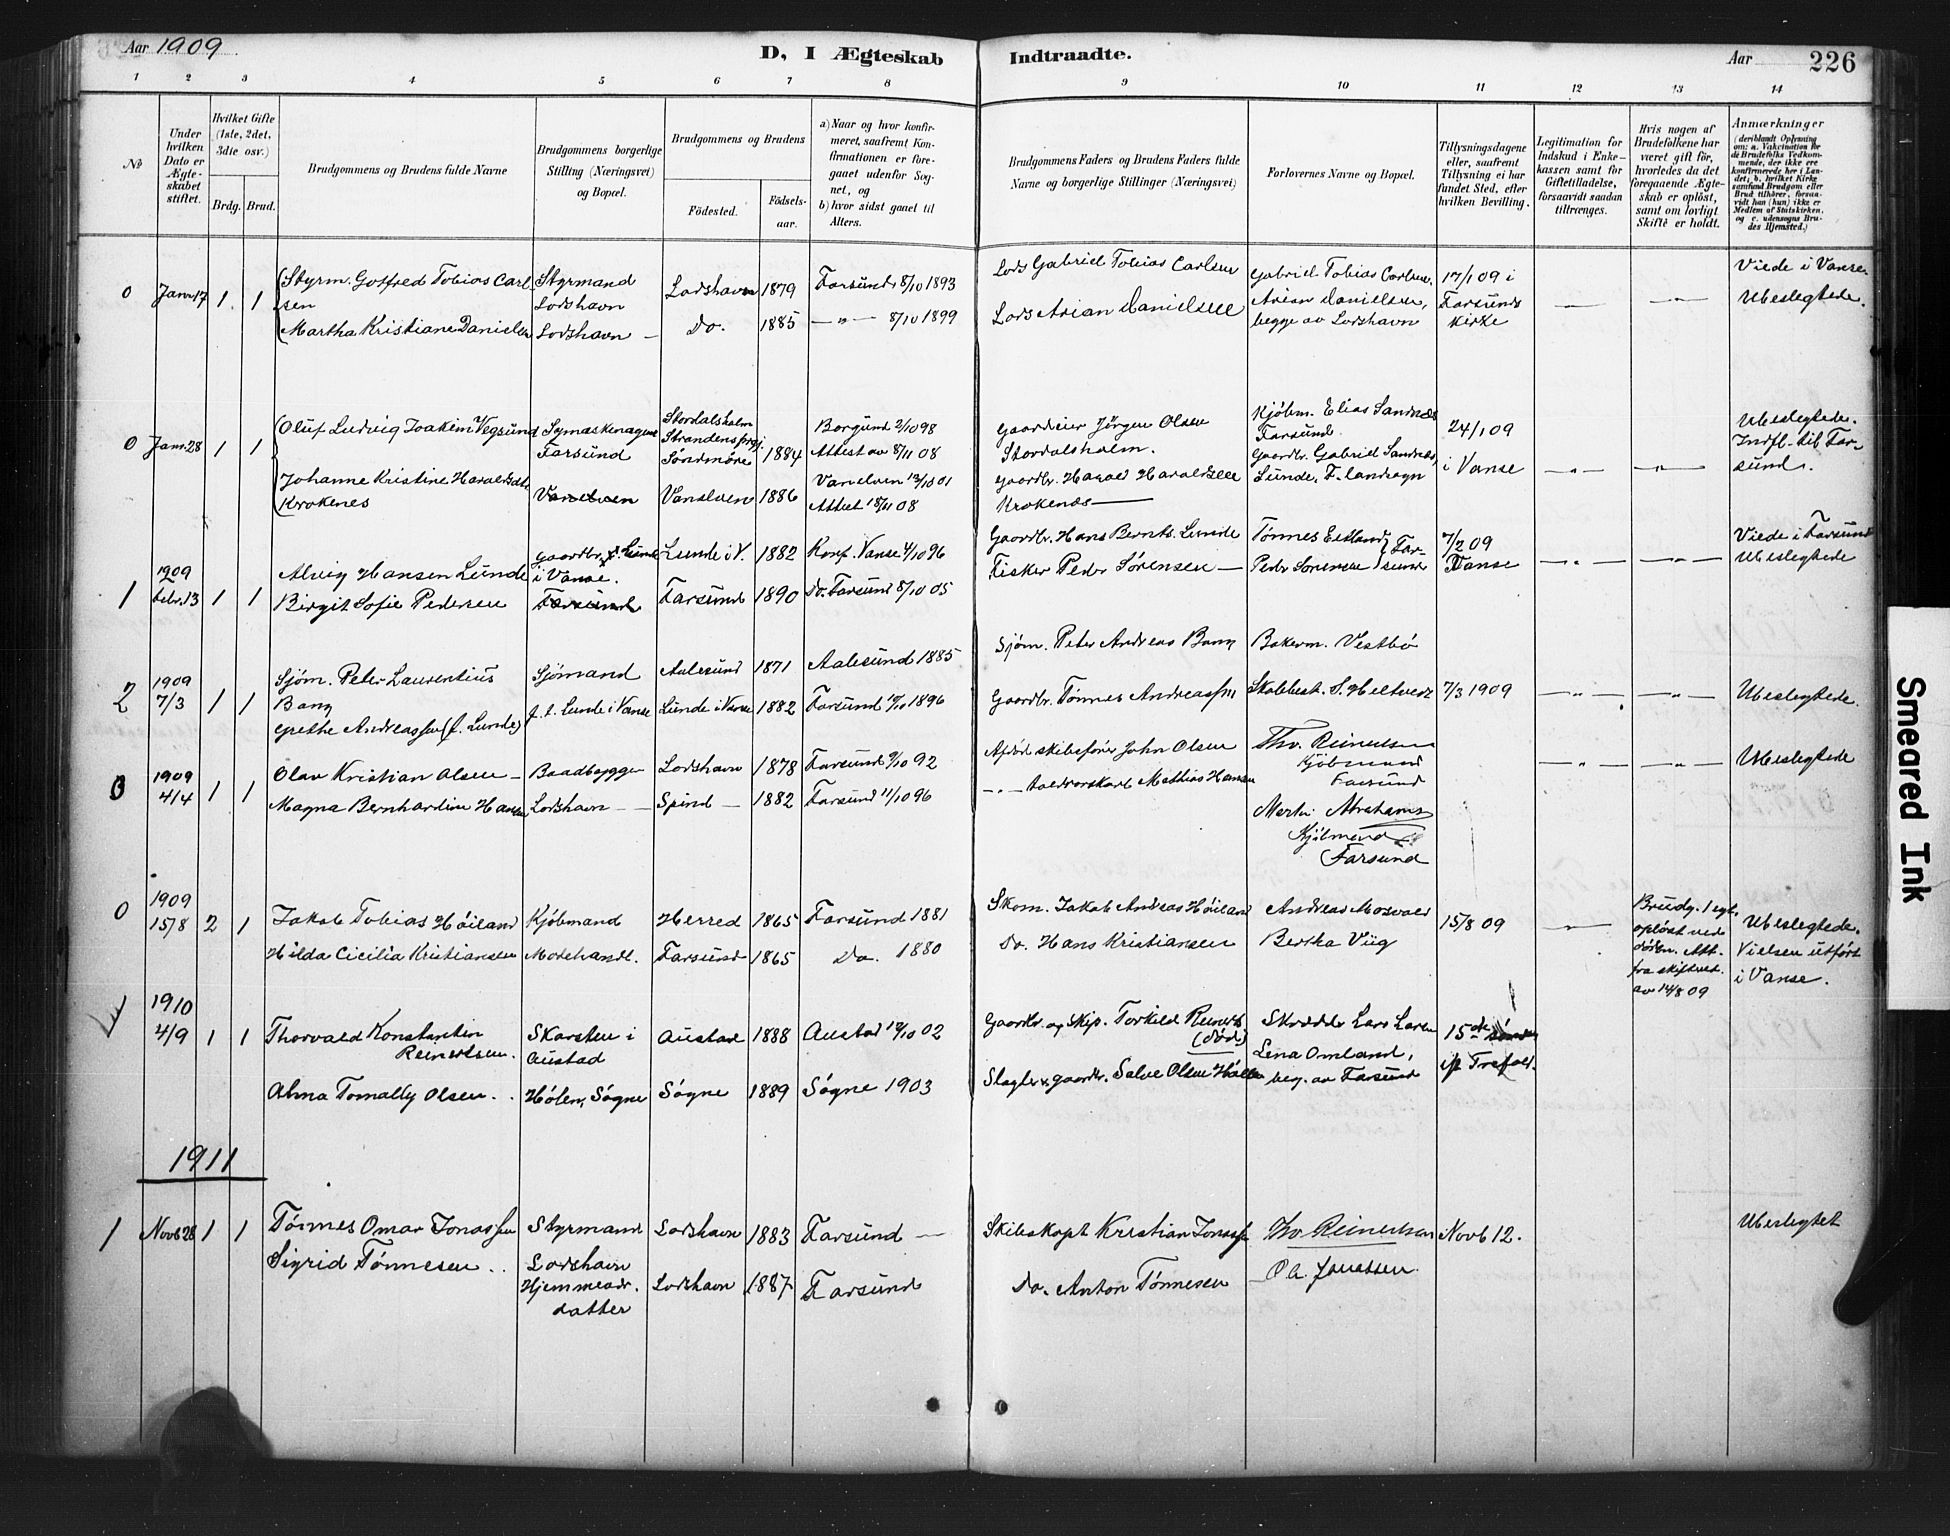 Aar 1909
D, I Ægteskab Indtraadte.
Aar 226
1 2 3 4 5 6 7 8 9 10 11 12 13 14
No
Under hvilken Dato er Ægteskabet stiftet.
Hvilket Gifte (1ste, 2det, 3die osv.)
Brdg. Brud.
Brudgommens og Brudens fulde Navne
Brudgommens borgerlige Stilling (Næringsvei) og Bopæl.
Brudgommens og Brudens
Födested.
Födselsaar.
a) Naar og hvor konfirmeret, saafremt Konfirmationen er foregaaet udenfor Sognet, og
b) hvor sidst gaaet til Alters.
Brudgommens Faders og Brudens Faders fulde Navne og borgerlige Stillinger (Næringsvei)
Forlovernes Navne og Bopæl.
Tillysningsdagene eller, saafremt Tillysning ei har fundet Sted, efter hvilken Bevilling.
Legitimation for Indskud i Enkekassen samt for Giftetilladelse, forsaavidt saadan tiltrænges.
Hvis nogen af Brudefolkene har været gift för, hvorledes da det foregaaende Ægteskab er oplöst, samt om lovligt Skifte er holdt.
Anmærkninger
(deriblandt Oplysning om: a. Vakcination for de Brudefolks Vedkommende, der ikke ere konfirmerede her i Landet; b. hvilket Kirkesamfund Brudgom eller Brud tilhörer, forsaavidt han (hun) ikke er Medlem af Statskirken, og c. udensogns Brudes Hjemsted.)
0 Janr 17 1 1
Styrm. Gotfred Tobias Carlsen
Martha Kristiane Danielsen
Styrmand
Lodshavn
Lodshavn —
Lodshavn 1879 Farsund 8/10 1893
Do. 1885 —"— 8/10 1899
Lods Gabriel Tobias Carlsen
Lods Arian Danielsen
Gabriel Tobias Carlsen,
Arian Danielsen,
begge av Lodshavn
17/1 09 i
Farsunds
kirke
—"— —"—
Viede i Vanse.
Ubeslegtede.
0 Janr. 28 1 1
Oluf Ludvig Joakim Vegsund
Johanne Kristine Haraldsdtr
Krokenes
Symaskenagent
Farsund
Vanelven
Stordalsholm
Strandens prgj.
Söndmöre 1884
Vanelven 1886
Borgund 2/10 98
Attest av 8/11 08
Vanelven 12/10 01
Attest 18/11 08
Gaardeier Jörgen Olsen
Stordalsholm.
Gaardbr. Harald Haraldsen
Krokenæs —
Kjöbm. Elias Sandnæs
Farsund.
Gaardbr. Gabriel Sandnæs,
Lunde, F. landsogn
24/1 09
i Vanse
—"— —"—
Ubeslegtede.
Indfl. til Farsund.
1 1909
Febr. 13 1 1
Alvig Hansen Lunde
Birgit Sofie Pedersen
Gaardbr. Lunde
i Vanse.
Farsund
Lunde i V. 1882 Konf. Vanse 4/10 96
Farsund 1890 Do. Farsund 8/10 05
Gaardbr. Hans Bernts. Lunde
Fisker Peder Sørensen —
Tønnes Eitland
Peder Sørensen Farsund
7/2 09
Vanse
—"— —"—
Viede i Farsund
Ubeslegtede
2 1909
7/3 1 1
Sjøm. Peter Laurentius
Bang
Grethe Andreassen (f. Lunde)
Sjömand
f. t. Lunde i Vanse
Aalesund 1871 Aalesund 1885
Lunde i Vanse 1882 Farsund 11/10 1896
Sjøm. Peter Andreas Bang
Gaardbr. Tönnes Andreassen
Bakerm. Vestbö
Skolebest. S. Heltveit
7/3 1909
—"— —"—
Ubeslegtede.
0 1909
4/4 1 1
Olav Kristian Olsen —
Magna Bernhardine Hansen
Baadbygger
Lodshavn —
Lodshavn 1878 Farsund 9/10 92
Spind — 1882 Farsund 11/10 96
Afdød skibsfører John Olsen
—"— toldrorskarl Mathias Hansen
Tho. Reinertsen
Kjöbmand
Farsund
Martin Abrahams
Kjöbmand
Farsund
—"— —"—
Ubeslegtede
0 1909
15/8 2 1
Jakob Tobias Höiland
Hilda Cicilia Kristiansen
Kjöbmand
Modehandl.
Herred 1865 Farsund 1881
Farsund 1865 Do. 1880
Skom. Jakob Andreas Höiland
Do. Hans Kristiansen
Andreas Mosvold
Bertha Viig
15/8 09
—"—
Brudg. 1 egt.
opløst ved
døden. Att.
fra skifteret.
av 14/8 09
Ubeslegtede.
Vielsen utført
i Vanse.
1 1910
4/9 1 1
Thorvald Konstantin
Reinertsen.
Alma Tomally Olsen.
Skarsten i
Austad
Hölen, Søgne
Austad 1888 Austad 12/10 02
Søgne 1889 Søgne 1903
Gaardbr. og Skip. Torkild Reinerts
(død)
Slagter & gaardbr. Salve Olsen Hölen
Skrædder Lars Larsen
Lena Omland,
beg. av Farsund
15de
e/p Trefold.
1911
1 Novb 28 1 1
Tönnes Omar Jonassen
Sigrid Tönnesen.
Styrmand
Lodshavn
Hjemmeadr.
datter
Lodshavn 1883 Farsund —
Lodshavn 1887 Farsund
Skibskapt Kristian Jonassen
Do. Anton Tønnesen
Tho. Reinertsen
Jonassen.
Novb 12.
Ubeslegtet
Smeared Ink